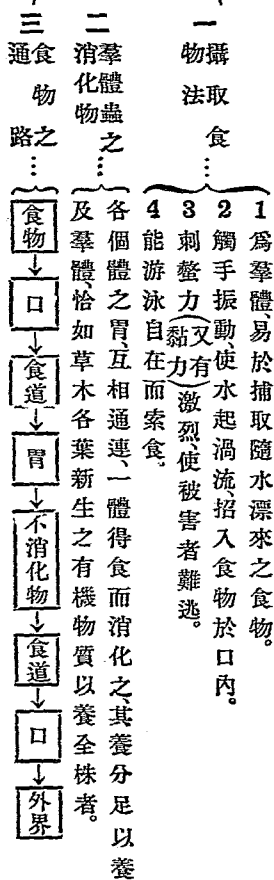 一 攝取食物法…
1 爲羣體、易於捕取隨水漂來之食物。
2 觸手振動、使水起渦流、招入食物於口內。
3 刺螫力(又有黏力)激烈、使被害者難逃。
4 能游泳自在而索食。
二 羣體蟲之消化物…
各個體之胃、互相通連、一體得食而消化之、其養分足以養
及羣體、恰如草木各葉新生之有機物質以養全株者。
三 食物之通路…
食物→口→食道→胃→不消化物→食道→口→外界